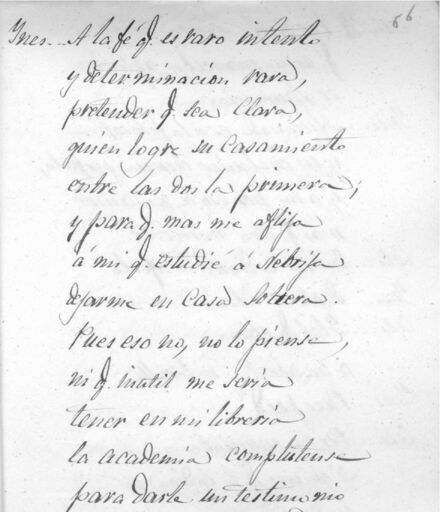 66
Ynes... A la fé q. es raro intento
y determinacion rara,
pretender q. sea Clara,
quien logre su Casamiento
entre las dos la primera;
y para q. mas me aflija
á mi q. estudié á Nebrija
dejarme en Casa Soltera.
Pues eso no, no lo piense,
ni q. inutil me seria
tener en mi libreria
la academia complutense
para darle un testimonio